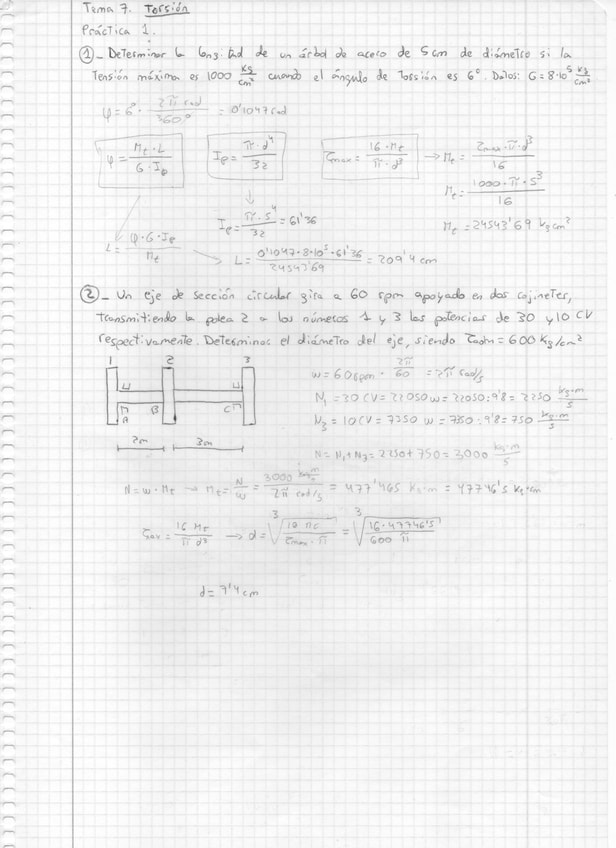 Tema 7. Torsión
Práctica 1.
① _ Determinar la longitud de un árbol de acero de 5 cm de diámetro si la
tensión máxima es 1000 kg/cm² cuando el ángulo de torsión es 6°. Datos: G = 8·10⁵ kg/cm²
φ = 6° · 2π rad/360° = 0'1047 rad
φ = Mt · L / G · Ip   Ip = π · d⁴ / 32   τmax = 16 · Mt / π · d³ → Mt = τmax · π · d³ / 16
Mt = 1000 · π · 5³ / 16
Ip = π · 5⁴ / 32 = 61'36   Mt = 24543'69 kg cm²
L = φ · G · Ip / Mt → L = 0'1047 · 8·10⁵ · 61'36 / 24543'69 = 209'4 cm
② _ Un eje de sección circular gira a 60 rpm apoyado en dos cojinetes,
transmitiendo la polea 2 a los números 1 y 3 las potencias de 30 y 10 CV
respectivamente. Determinar el diámetro del eje, siendo τadm = 600 kg/cm²
1 2 3
w = 60 rpm · 2π/60 = 2π rad/s
N₁ = 30 CV = 22050 w = 22050 : 9'8 = 2250 kg·m/s
A B C
N₃ = 10 CV = 7350 w = 7350 : 9'8 = 750 kg·m/s
2m 3m
N = N₁ + N₃ = 2250 + 750 = 3000 kg·m/s
N = w · Mt → Mt = N/w = 3000 kg·m/s / 2π rad/s = 477'465 kg·m = 47746'5 kg·cm
τmax = 16 Mt / π d³ → d = ∛(16 Mt / τmax · π) = ∛(16 · 47746'5 / 600 π)
d = 7'4 cm